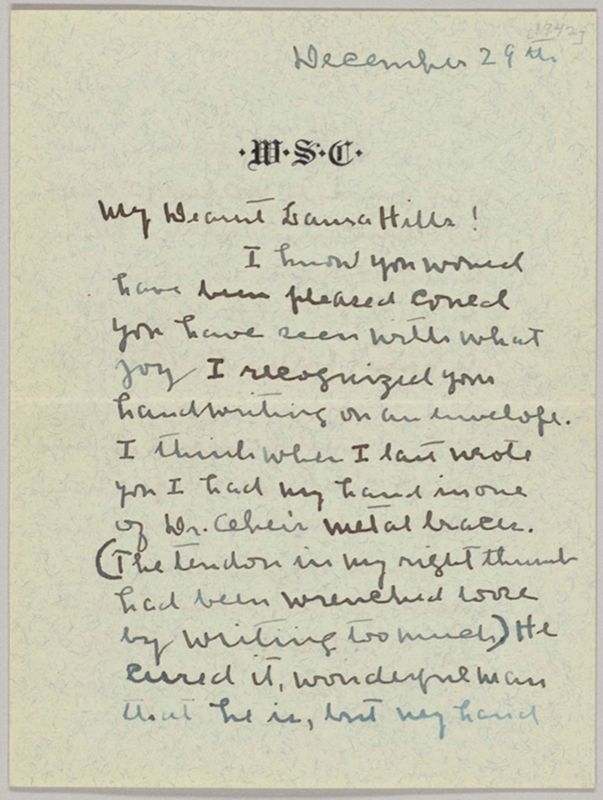 [1942]
December 29th
·W·S·C·
My Dearest Laura Hills!
I know you would
have been pleased could
you have seen with what
joy I recognized your
handwriting on an envelope.
I think when I last wrote
you I had my hand in one
of Dr. metal braces.
(The tendon in my right thumb
had been wrenched loose
by writing too much) He
cured it, wonderful man
that he is, but my hand